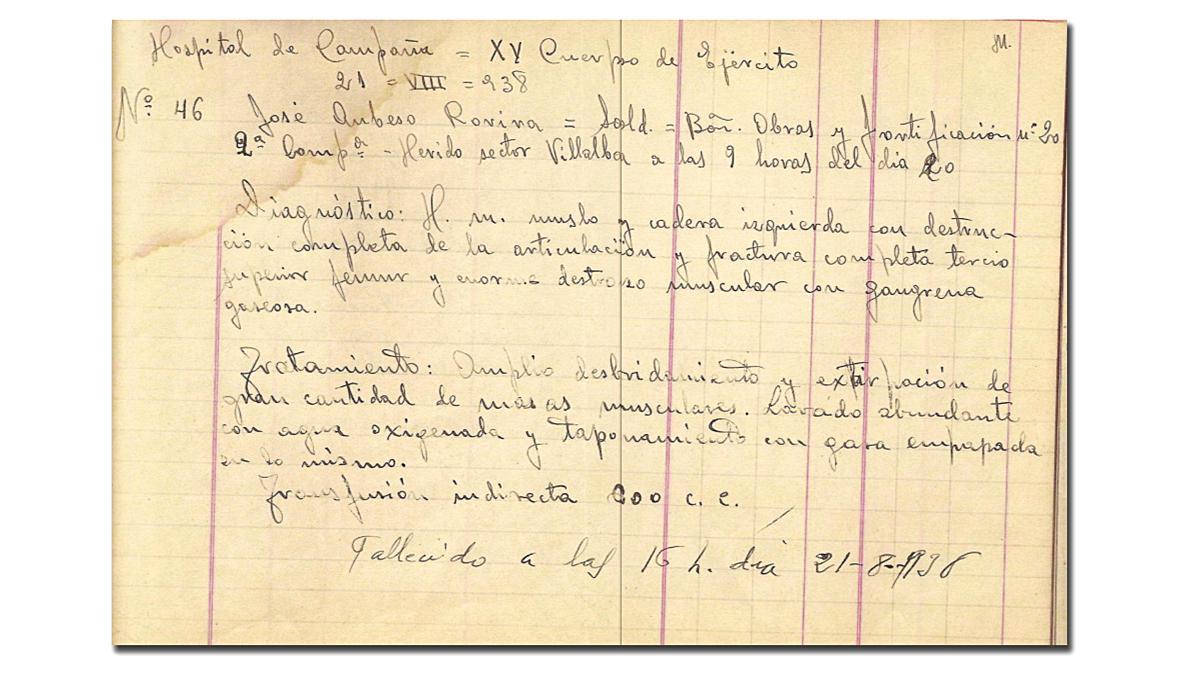 M.
Hospital de Campaña = XV Cuerpo de Ejército
21 = VIII = 938
Nº 46 José Aubeso Rovira = Sold. = Bón. Obras y fortificación nº 20
2ª Compª - Herido sector Villalba a las 9 horas del dia 20
Diagnóstico: H. m. muslo y cadera izquierda con destruc-
ción completa de la articulación y fractura completa tercio
superior femur y enorme destrozo muscular con gangrena
gaseosa.
Tratamiento: Amplio desbridamiento y extirpación de
gran cantidad de masas musculares. Lavado abundante
con agua oxigenada y taponamiento con gasa empapada
en lo mismo.
Transfusión indirecta 200 c. c.
Fallecido a las 16 h. dia 21-8-1938